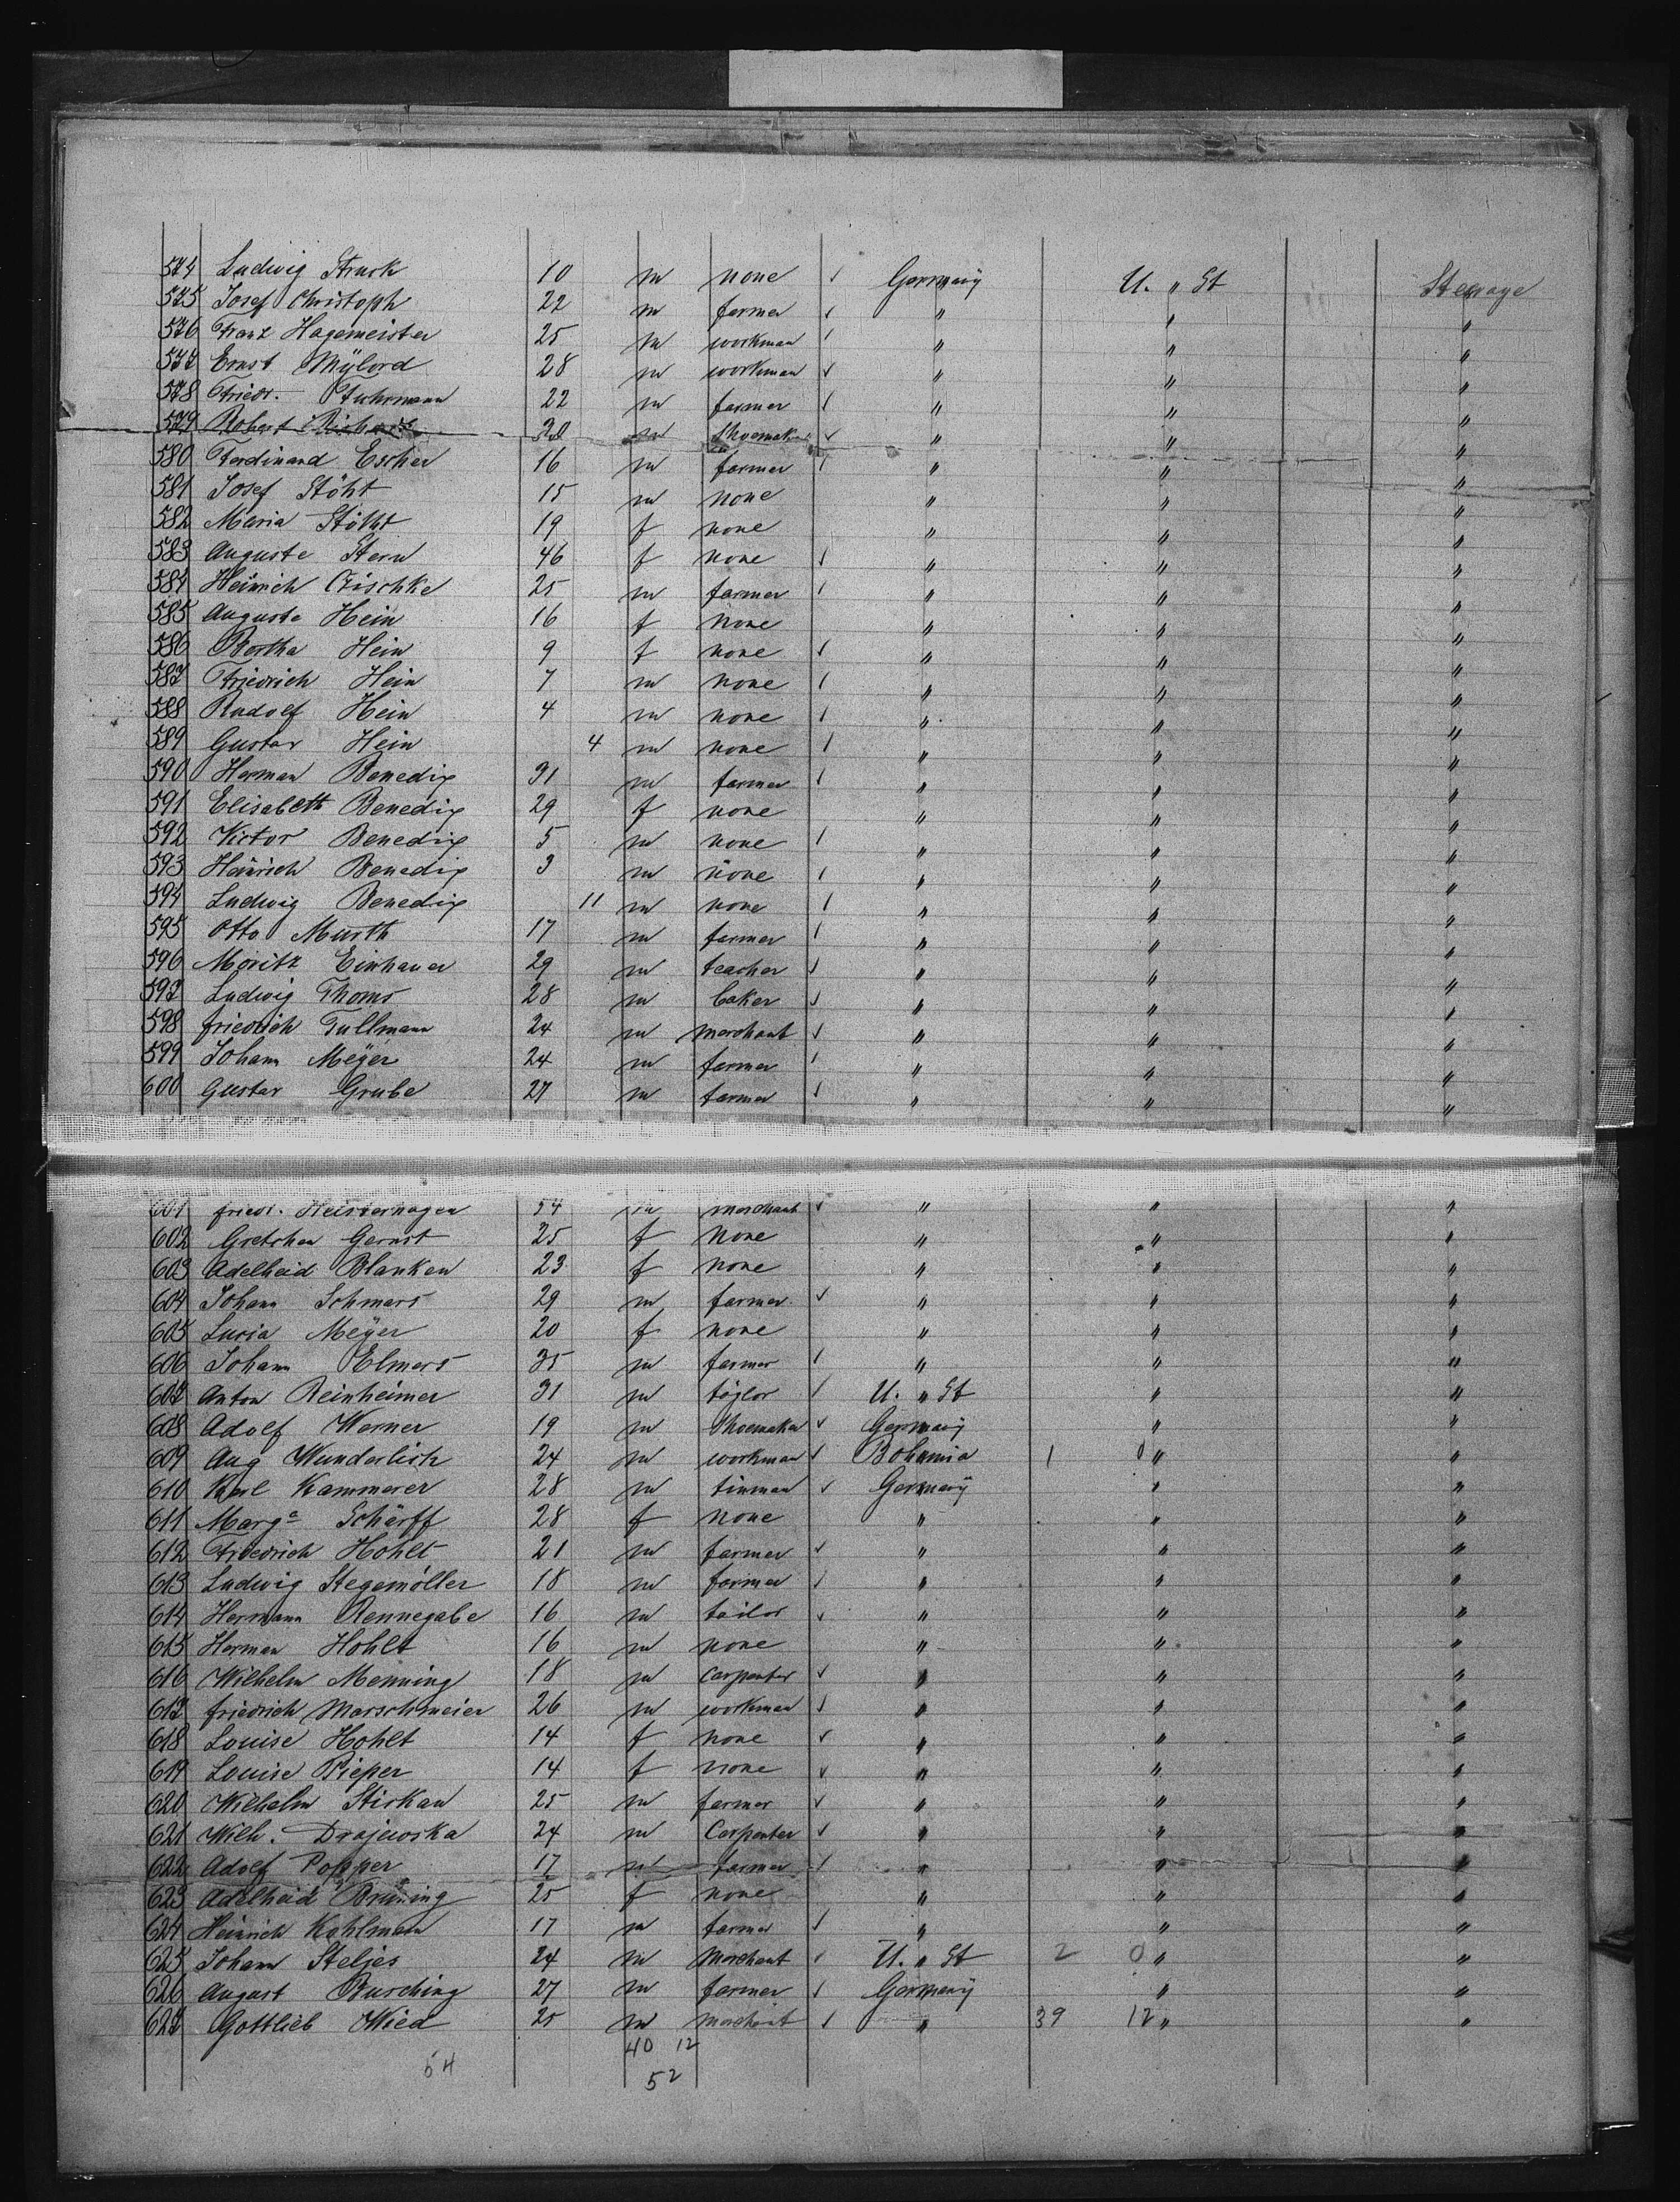 574 Ludwig Struck 10 m none ✓ Germany U. " St Steerage
575 Josef Christoph 22 m farmer ✓ " " "
576 Franz Hagemeister 25 m workman ✓ " " "
577 Ernst Mylord 28 m workman ✓ " " "
578 Friedr. Fuhrmann 22 m farmer ✓ " " "
579 Robert m Shoemaker ✓ " " "
580 Ferdinand Escher 16 m farmer ✓ " " "
581 Josef Stöht 15 m none " " "
582 Maria Stöht 19 f none " " "
583 Auguste Stern 46 f none ✓ " " "
584 Heinrich Czischke 25 m farmer ✓ " " "
585 Auguste Hein 16 f none " " "
586 Bertha Hein 9 f none ✓ " " "
587 Friedrich Hein 7 m none ✓ " " "
588 Rudolf Hein 4 m none ✓ " " "
589 Gustav Hein 4 m none ✓ " " "
590 Herman Benedix 31 m farmer ✓ " " "
591 Elisabeth Benedix 29 f none " " "
592 Victor Benedix 5 m none ✓ " " "
593 Heinrich Benedix 3 m none ✓ " " "
594 Ludwig Benedix 11 m none ✓ " " "
595 Otto Murth 17 m farmer ✓ " " "
596 Moritz Einhauer 29 m teacher ✓ " " "
597 Ludwig Thoms 28 m baker ✓ " " "
598 friedrich Tullmann 24 m merchant ✓ " " "
599 Johann Meÿer 24 m farmer ✓ " " "
600 Gustav Grube 27 m farmer ✓ " " "
601 friedr. Heisterhagen 54 m merchant ✓ " " "
602 Gretchen Gernst 25 f none " " "
603 Adelheid Blanken 23 f none " " "
604 Johann Schmars 29 m farmer ✓ " " "
605 Lucia Meÿer 20 f none " " "
606 Johann Elmers 35 m farmer ✓ " " "
607 Anton Reinheimer 31 m ✓ U. " St " "
608 Adolf Werner 19 m Shoemaker ✓ Germany " "
609 Aug Wunderlich 24 m workman ✓ Bohemia 1 0 " "
610 Karl Kammerer 28 m tinman ✓ Germany " "
611 Marga Schärff 28 f none " " "
612 Friedrich Hohlt 21 m farmer ✓ " " "
613 Ludwig Stegemöller 18 m farmer ✓ " " "
614 Hermann Rennegabe 16 m tailor ✓ " " "
615 Herman Hohlt 16 m none " " "
616 Wilhelm Menning 18 m carpenter ✓ " " "
617 friedrich Marschmeier 26 m workman ✓ " " "
618 Louise Hohlt 14 f none ✓ " " "
619 Louise Pieper 14 f none ✓ " " "
620 Wilhelm Stirkan 25 m farmer ✓ " " "
621 Wilh. Drajewska 24 m Carpenter ✓ " " "
622 Adolf Popper 17 m farmer ✓ " " "
623 Adelheid Brüning 25 f none " " "
624 Heinrich Kohlmann 17 m farmer ✓ " " "
625 Johann Steljes 24 m Merchant ✓ U. " St 2 0 " "
626 August Busching 27 m farmer ✓ Germany " "
627 Gottlieb Wied 25 m merchant ✓ " 39 12 " "
40 12
54 52